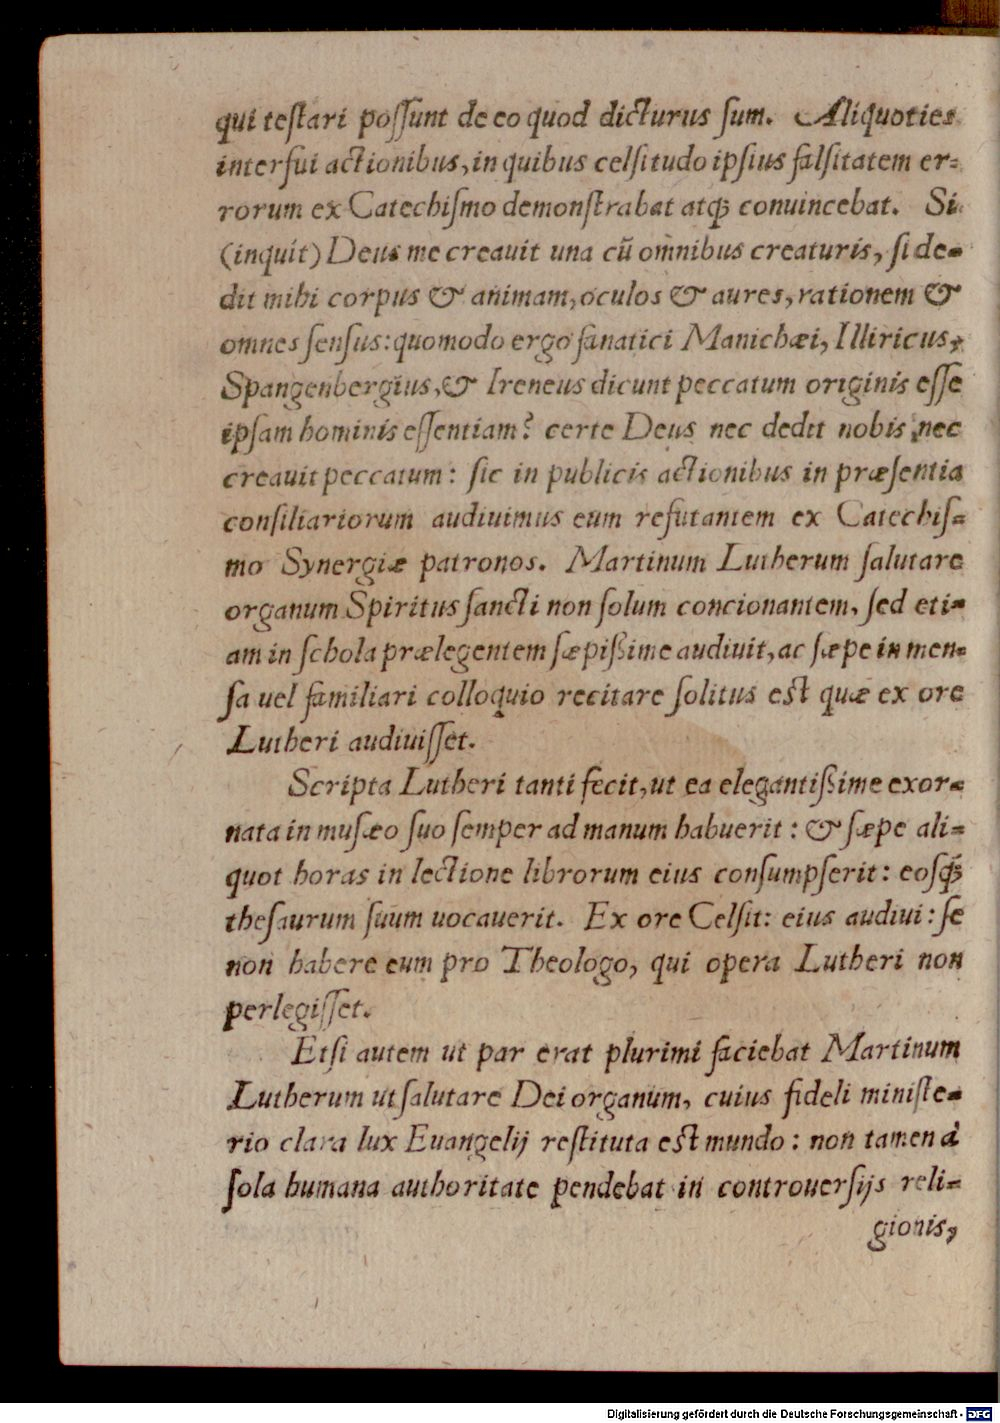 qui teſtari poſſunt de eo quod dicturus ſum. Aliquoties
interfui actionibus, in quibus celſitudo ipſius falſitatem er-
rorum ex Catechiſmo demonſtrabat atqꝫ conuincebat. Si
(inquit) Deus me creauit una cū om̄nibus creaturis, ſi de-
dit mihi corpus & animam, oculos & aures, rationem &
omnes ſenſus: quomodo ergo fanatici Manichæi, Illiricus,
Spangenbergius, & Ireneus dicunt peccatum originis eſſe
ipſam hominis eſſentiam? certe Deus nec dedit nobis, nec
creauit peccatum: ſic in publicis actionibus in præſentia
conſiliariorum audiuimus eum refutantem ex Catechiſ-
mo Synergiæ patronos. Martinum Lutherum ſalutare
organum Spiritus ſancti non ſolum concionantem, ſed eti-
am in ſchola prælegentem ſæpißime audiuit, ac ſæpe in men-
ſa uel familiari colloquio recitare ſolitus eſt quæ ex ore
Lutheri audiuiſſet.
Scripta Lutheri tanti fecit, ut ea elegantißime exor-
nata in muſæo ſuo ſemper ad manum habuerit: & ſæpe ali-
quot horas in lectione librorum eius conſumpſerit: eoſqꝫ
theſaurum ſuum uocauerit. Ex ore Celſit: eius audiui: ſe
non habere eum pro Theologo, qui opera Lutheri non
perlegiſſet.
Etſi autem ut par erat plurimi faciebat Martinum
Lutherum ut ſalutare Dei organum, cuius fideli miniſte-
rio clara lux Euangelij reſtituta eſt mundo: non tamen à
ſola humana authoritate pendebat in controuerſijs reli-
gionis,
Digitalisierung gefördert durch die Deutsche Forschungsgemeinschaft - DFG